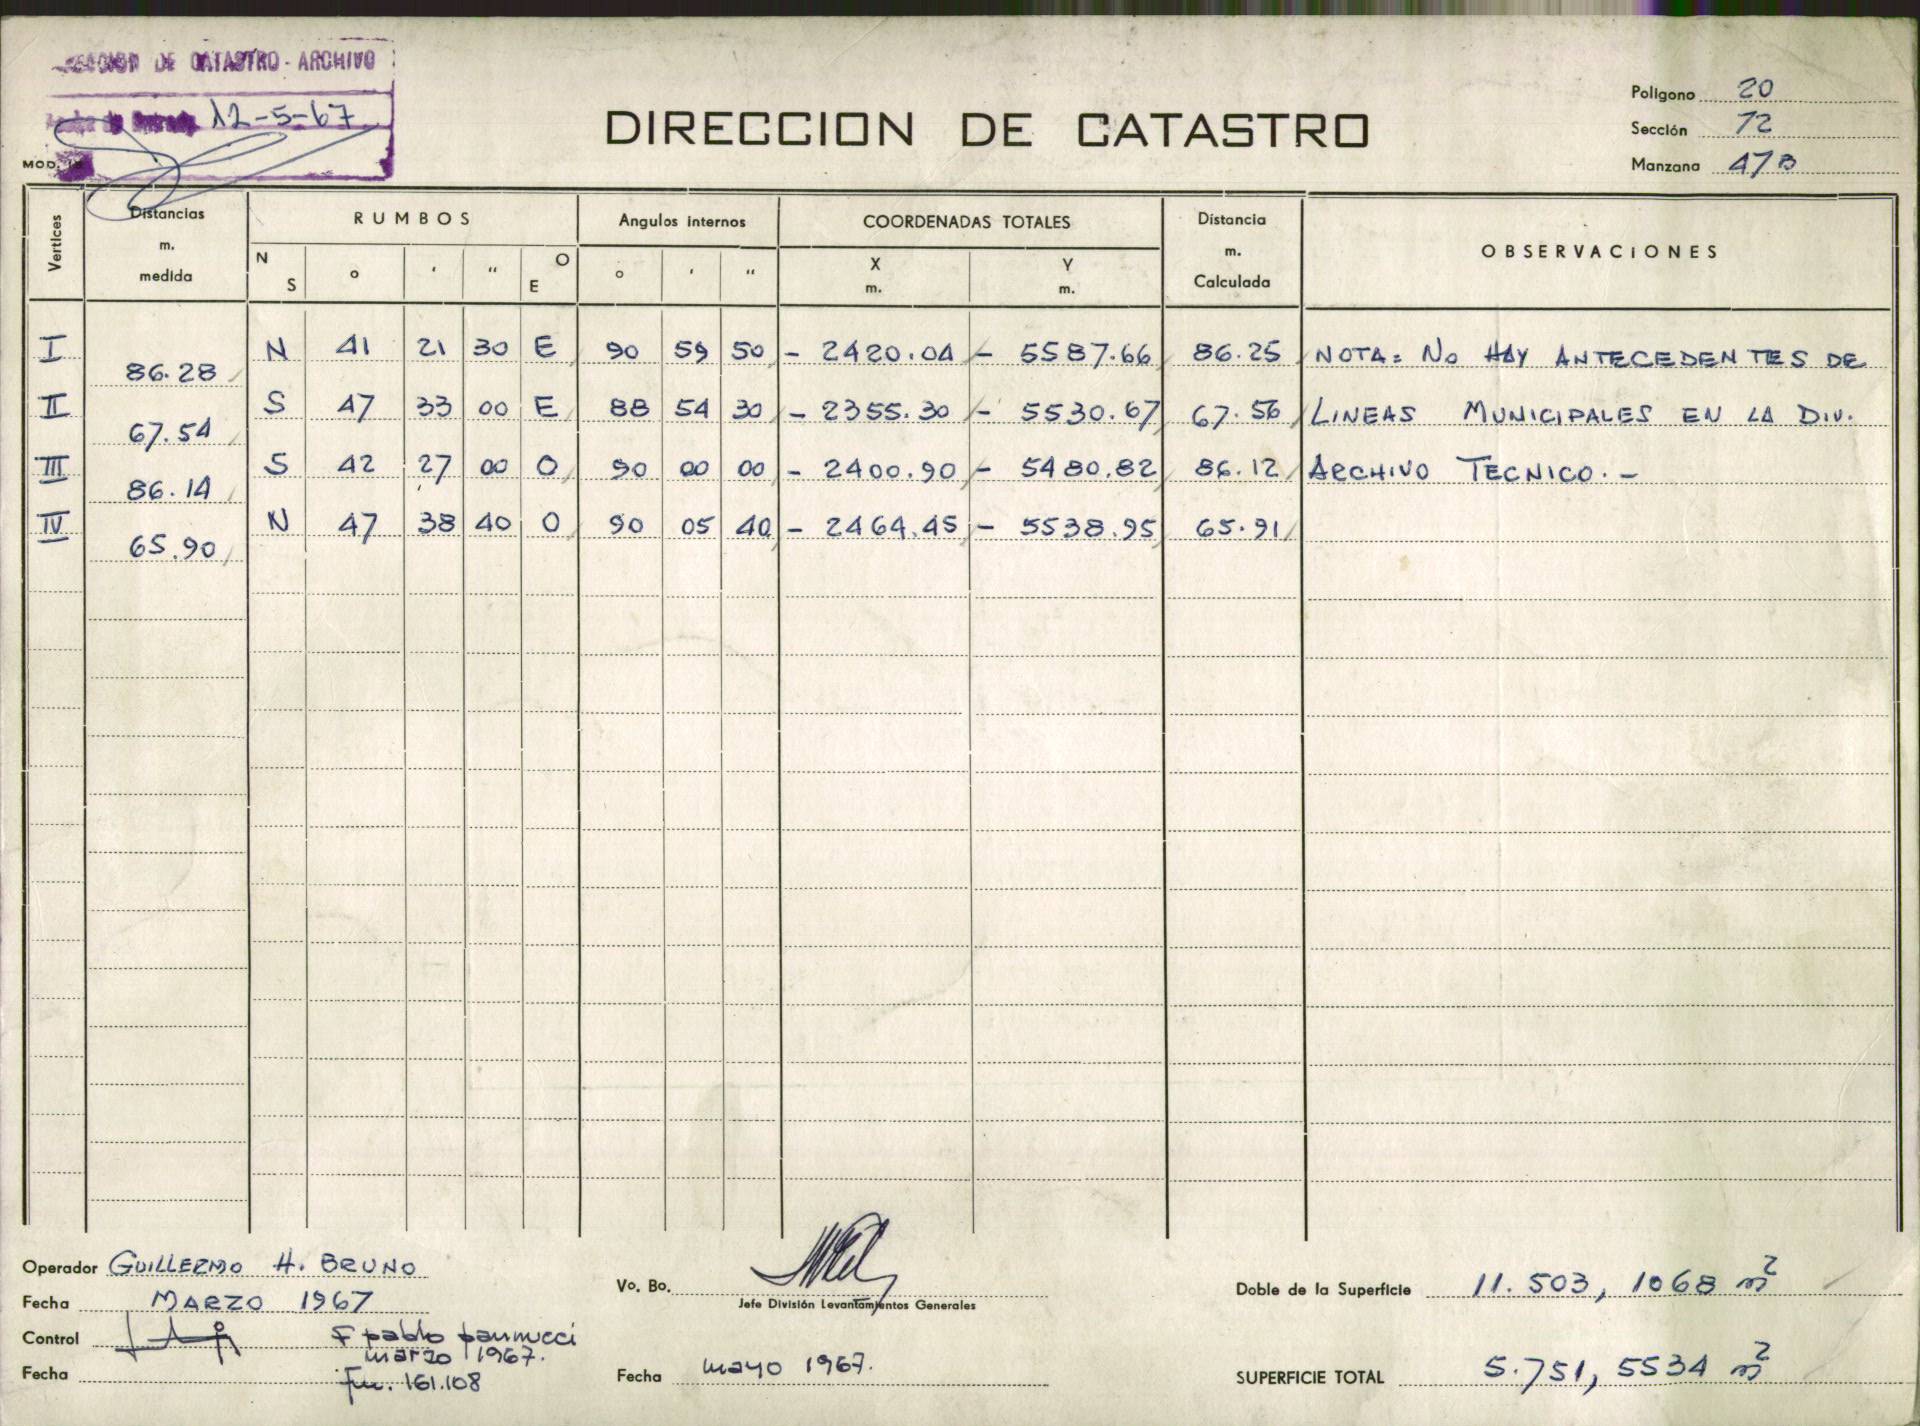 DE CATASTRO - ARCHIVO
12-5-67
MOD.
DIRECCION DE CATASTRO
Poligono 20
Sección 72
Manzana 47B
Vertices
Distancias m. medida
RUMBOS
Angulos internos
COORDENADAS TOTALES
Distancia m. Calculada
OBSERVACIONES
N S ° ' " O E ° ' " X m. Y m.
I N 41 21 30 E 90 59 50 - 2420.04 - 5587.66 86.25 NOTA: No HAY ANTECEDENTES DE
86.28
II S 47 33 00 E 88 54 30 - 2355.30 - 5530.67 67.56 LINEAS MUNICIPALES EN LA DIV.
67.54
III S 42 27 00 O 90 00 00 - 2400.90 - 5480.82 86.12 ARCHIVO TECNICO.-
86.14
IV N 47 38 40 O 90 05 40 - 2464.45 - 5538.95 65.91
65.90
Operador GUILLERMO H. BRUNO
Fecha MARZO 1967
Control pablo pannucci
marzo 1967.
Fecha 161.108
Vo. Bo.
Jefe División Levantamientos Generales
Fecha mayo 1967.
Doble de la Superficie 11.503, 1068 m²
SUPERFICIE TOTAL 5.751, 5534 m²